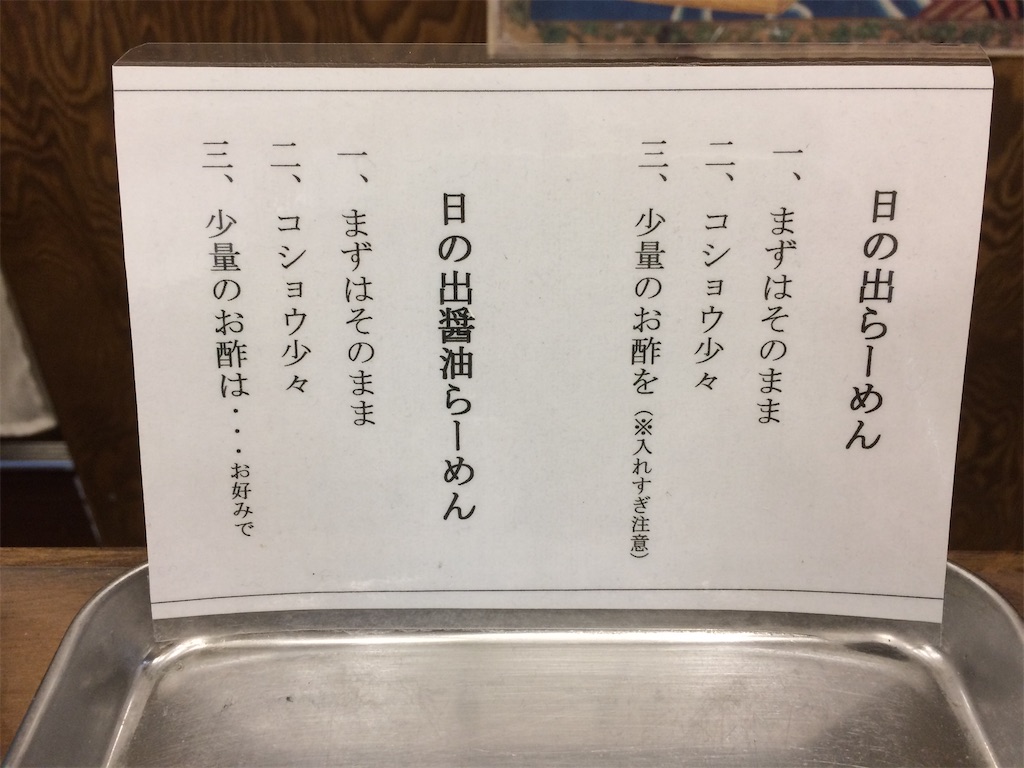 日の出らーめん
一、まずはそのまま
二、コショウ少々
三、少量のお酢を（※入れすぎ注意）
日の出醤油らーめん
一、まずはそのまま
二、コショウ少々
三、少量のお酢は・・・お好みで